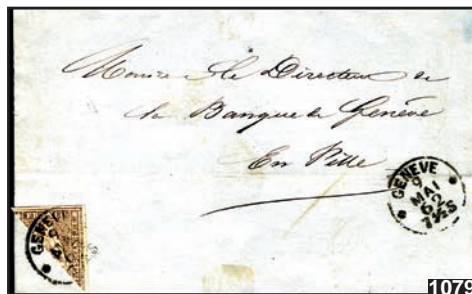 Monsieur le Directeur de
la Banque de Genève
En Ville
GENEVE
9
MAI
62
7½S
GENEVE
1079